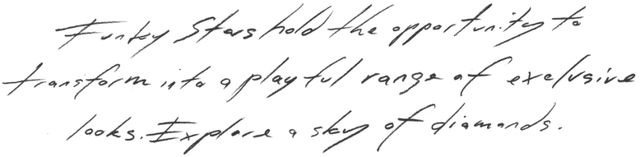 Funky Stars hold the opportunity to
transform into a playful range of exclusive
looks. Explore a sky of diamonds.